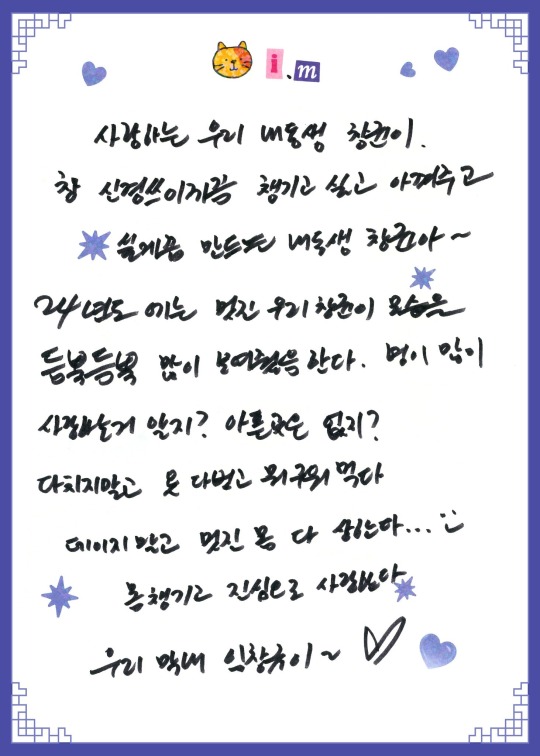 i.m
사랑하는 우리 내동생 창균이.
참 신경쓰이게끔 챙기고 싶고 아껴주고
싶게끔 만드는 내동생 창균아~
24년도에는 멋진 우리창균이 모습을
듬북듬북 많이 보여줬음 한다. 형이 많이
사랑하는거 알지? 아픈곳은 없지?
다치지말고 옷 다벗고 뭐구워 먹다
데이지 말고 멋진 몸 다 상한다... :)
몸챙기고 진심으로 사랑한다
우리 막내 임창균이~ ♡